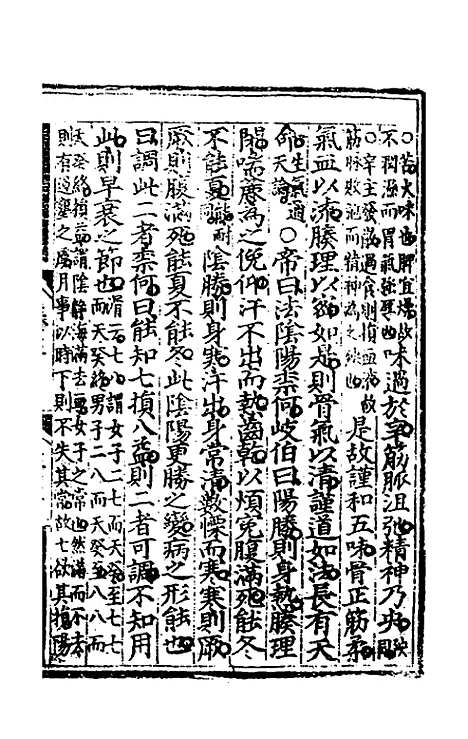 苦火味也脾宜燥故
不潤澤而胃氣強厚也味過於辛筋脈沮弛精神乃央
辛主發散過食則損血液故
筋脉敗弛而精神為之殃也是故謹和五味骨正筋柔
氣血以流腠理以密如是則骨氣以清謹道如法長有天
命生氣通天論○帝曰法陰陽柰何岐伯曰陽勝則身熱腠理
閉喘麄為之俛仰汗不出而熱齒乾以煩冤腹滿死能冬
不能夏能耐陰勝則身寒汗出身常清數慄而寒寒則厥
厥則腹滿死能夏不能冬此陰陽更勝之變病之形能也
曰調此二者柰何曰能知七損八益則二者可調不知用
此則早衰之節也用二七八謂女子二七而天癸至七七
而天癸終男子二八而天癸至八八而
天癸終損益謂陰靜海滿去血女子之常也然滿而不去
則有壅塞之虞月事以時下則不失其常故七欲其損陽